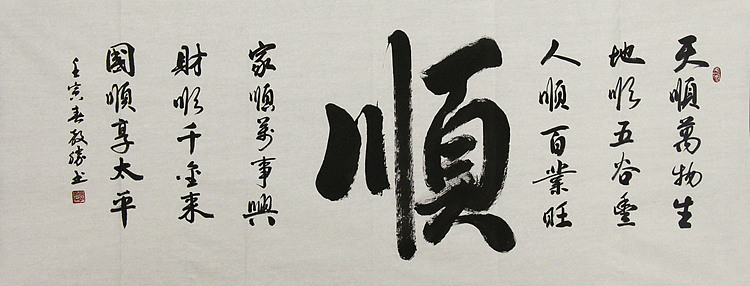 天順萬物生
地順五谷豐
人順百業旺
順
家順萬事興
財順千金來
國順享太平
壬寅春啟勝書